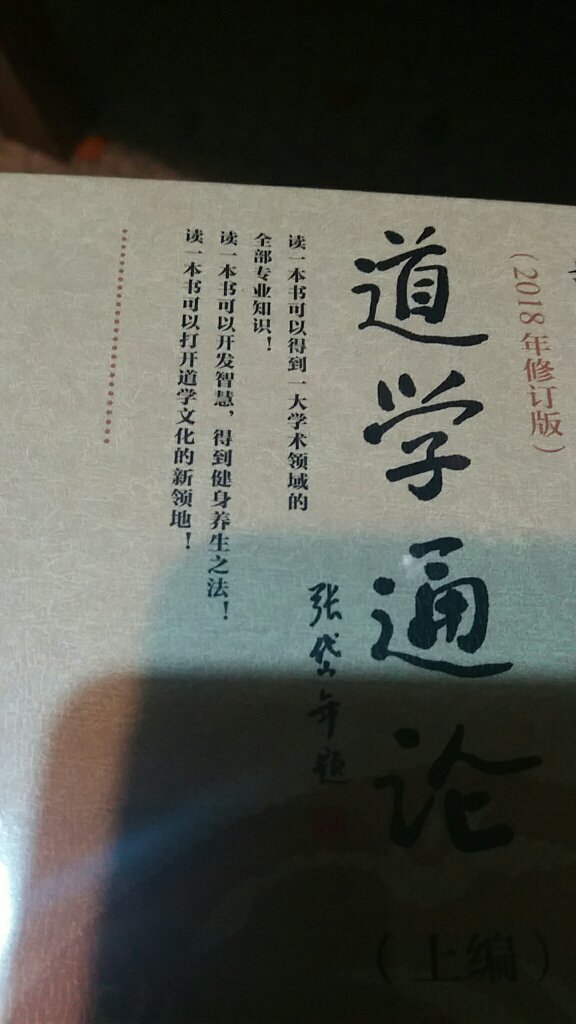 (2018年修订版)
道学通论
(上编)
张岱年题
读一本书可以得到一大学术领域的
全部专业知识!
读一本书可以开发智慧,得到健身养生之法!
读一本书可以打开道学文化的新领地!